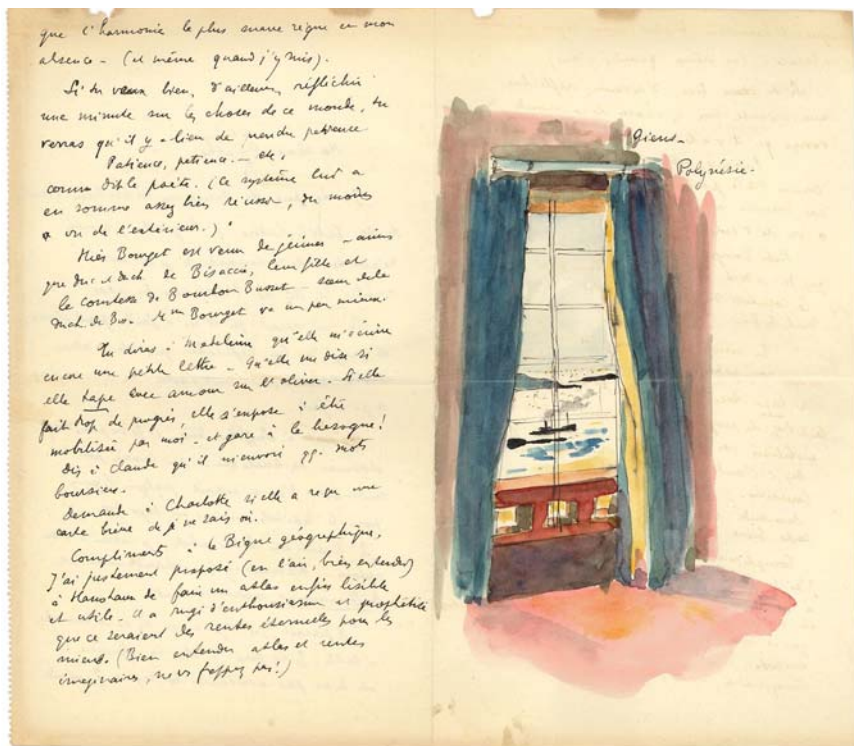 que l'harmonie la plus suave règne en mon
absence - (et même quand j'y suis).
Si tu veux bien, d'ailleurs, réfléchir
une minute sur les choses de ce monde, tu
verras qu'il y a lieu de prendre patience
Patience, patience. - etc,
comme dit le poète. (Ce système lui a
en somme assez bien réussi, du moins
à vu de l'extérieur.)
Miss Bourget est venu déjeuner - ainsi
que duc et duch. de Bisaccia, leur fille et
la comtesse de Bourbon Busset - sœur de la
duch. de Bis. Mme Bourget va un peu mieux.
Tu diras à Madeleine qu'elle m'écrive
encore une petite lettre - Qu'elle me dise si
elle tape avec amour sur l'oliver. Si elle
fait trop de progrès, elle s'expose à être
mobilisée par moi - et gare à la besogne!
Dis à Claude qu'il m'envoie qq. mots
boursiers.
Demande à Charlotte si elle a reçu une
carte brève de je ne sais où.
Compliments à la Bigue géographique,
J'ai justement proposé (en l'air, bien entendu)
à Hanotaux de faire un atlas enfin lisible
et utile - il a rugi d'enthousiasme et prophétisé
que ce seraient des rentes éternelles pour les
miens. (Bien entendu atlas et rentes
imaginaires, ne vs frappez pas!)
Giens -
Polynésie -